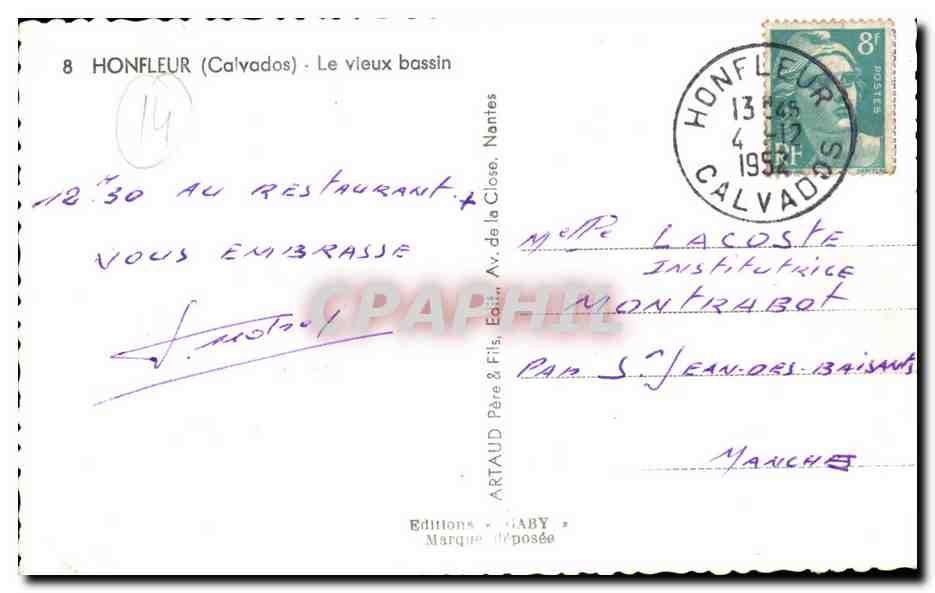 8 HONFLEUR (Calvados) - Le vieux bassin
14
12H30 AU RESTAURANT +
VOUS EMBRASSE
ARTAUD Père & Fils, Edit., Av. de la Close, Nantes
Editions « GABY »
Marque déposée
8f
POSTES
RF
HONFLEUR
13H45
4 -12
1952
CALVADOS
Melle LACOSTE
INSTITUTRICE
MONTRABOT
PAR St JEAN-DES-BAISANTS
MANCHE
CPAPHIL